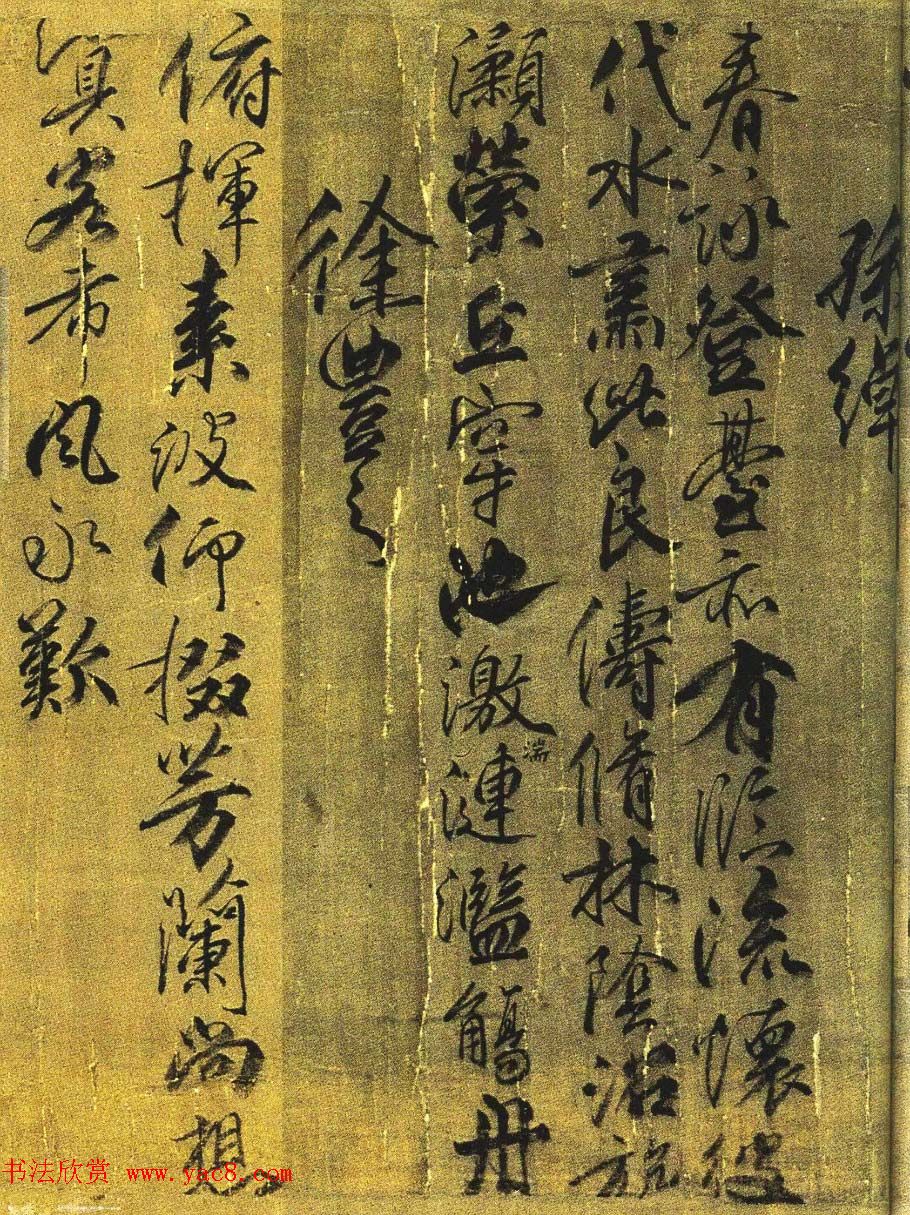 孫綽
春詠登臺亦有臨流懷彼
代水肅此良儔脩林陰沼旋
瀨縈丘穿池激湍漣濫觴舟
徐豐之
俯揮素波仰掇芳蘭尚想
冥客希風永歎
书法欣赏 www.yac8.com